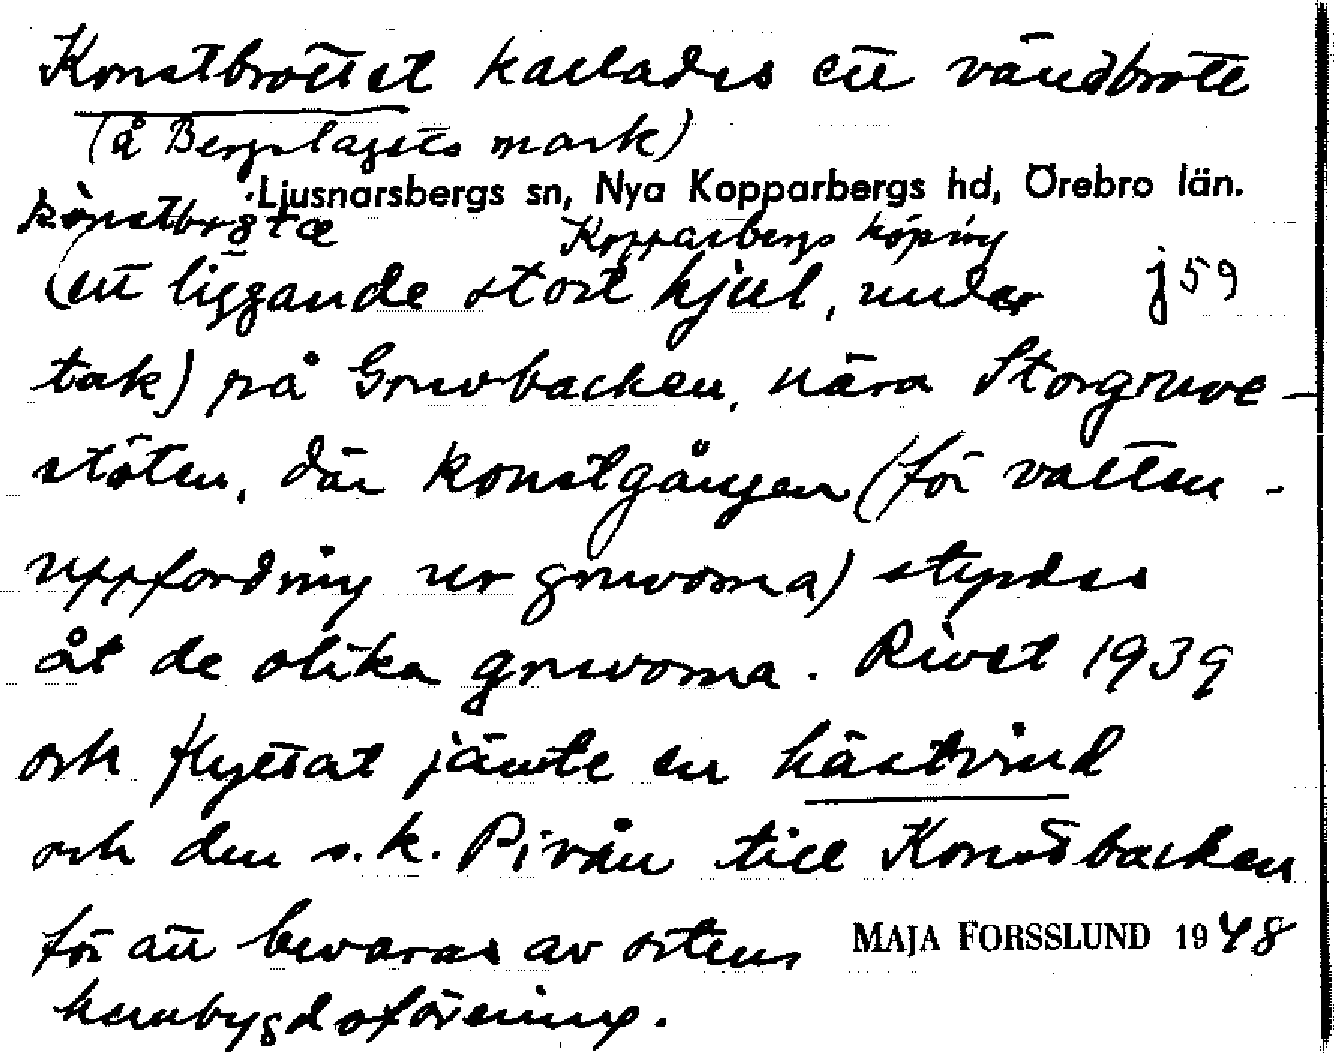 Konstbrottet kallades ett vändbrott
(å Bergslagets mark)
Ljusnarsbergs sn, Nya Kopparbergs hd, Örebro län.
Kopparbergs köping
(ett liggande stort hjul, under j 59
tak) på Gruvbacken, nära Storgruve-
stöten, där konstgången (för vatten-
uppfordring ur gruvorna) styrdes
åt de olika gruvorna. Rivet 1939
och flyttat jämte en hästvind
och den s.k. Pivån till Konstbacken
för att bevaras av ortens
MAJA FORSSLUND 1948
hembygdsförening.